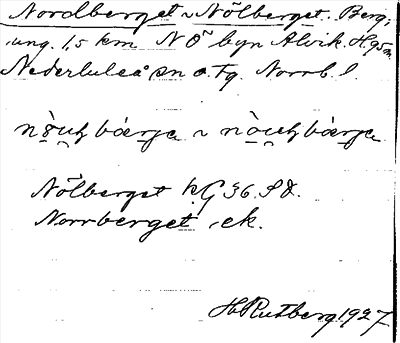 Nordberget ~ Nölberget. Berg,
ung. 1,5 km N Ö byn Alvik. H. 95 m.
Nederluleå sn o. tg. Norrb. l.
Nölberget kG 36. S Ö.
Norrberget, ek.
H Rutberg 1927